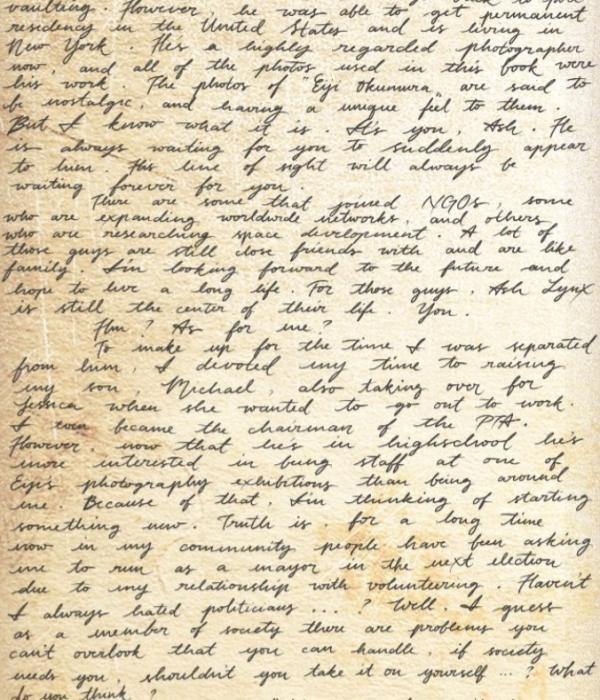 vaulting. However, he was able to get permanent
residency in the United States and is living in
New York. He's a highly regarded photographer
now, and all of the photos used in this book were
his work. The photos of "Eiji Okumura" are said to
be nostalgic, and having a unique feel to them.
But I know what it is. It's you, Ash. He
is always waiting for you to suddenly appear
to him. His line of sight will always be
waiting forever for you.
There are some that joined NGOs, some
who are expanding worldwide networks, and others
who are researching space development. A lot of
those guys are still close friends with and are like
family. I'm looking forward to the future and
hope to live a long life. For those guys, Ash Lynx
is still the center of their life. You.
Hm? As for me?
To make up for the time I was separated
from him, I devoted my time to raising
my son Michael, also taking over for
Jessica when she wanted to go out to work.
I even became the chairman of the PTA.
However, now that he's in highschool he's
more interested in being staff at one of
Eiji's photography exhibitions than being around
me. Because of that, I'm thinking of starting
something new. Truth is, for a long time
now in my community people have been asking
me to run as a mayor in the next election
due to my relationship with volunteering. Haven't
I always hated politicians ...? Well, I guess
as a member of society there are problems you
can't overlook that you can handle, if society
needs you, shouldn't you take it on yourself ...? What
do you think?